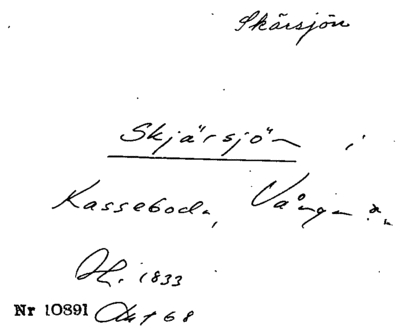 Skärsjön
Skjärsjön i
Kasseboda, Vånga
H. 1833
Nr 10891 Akt 68